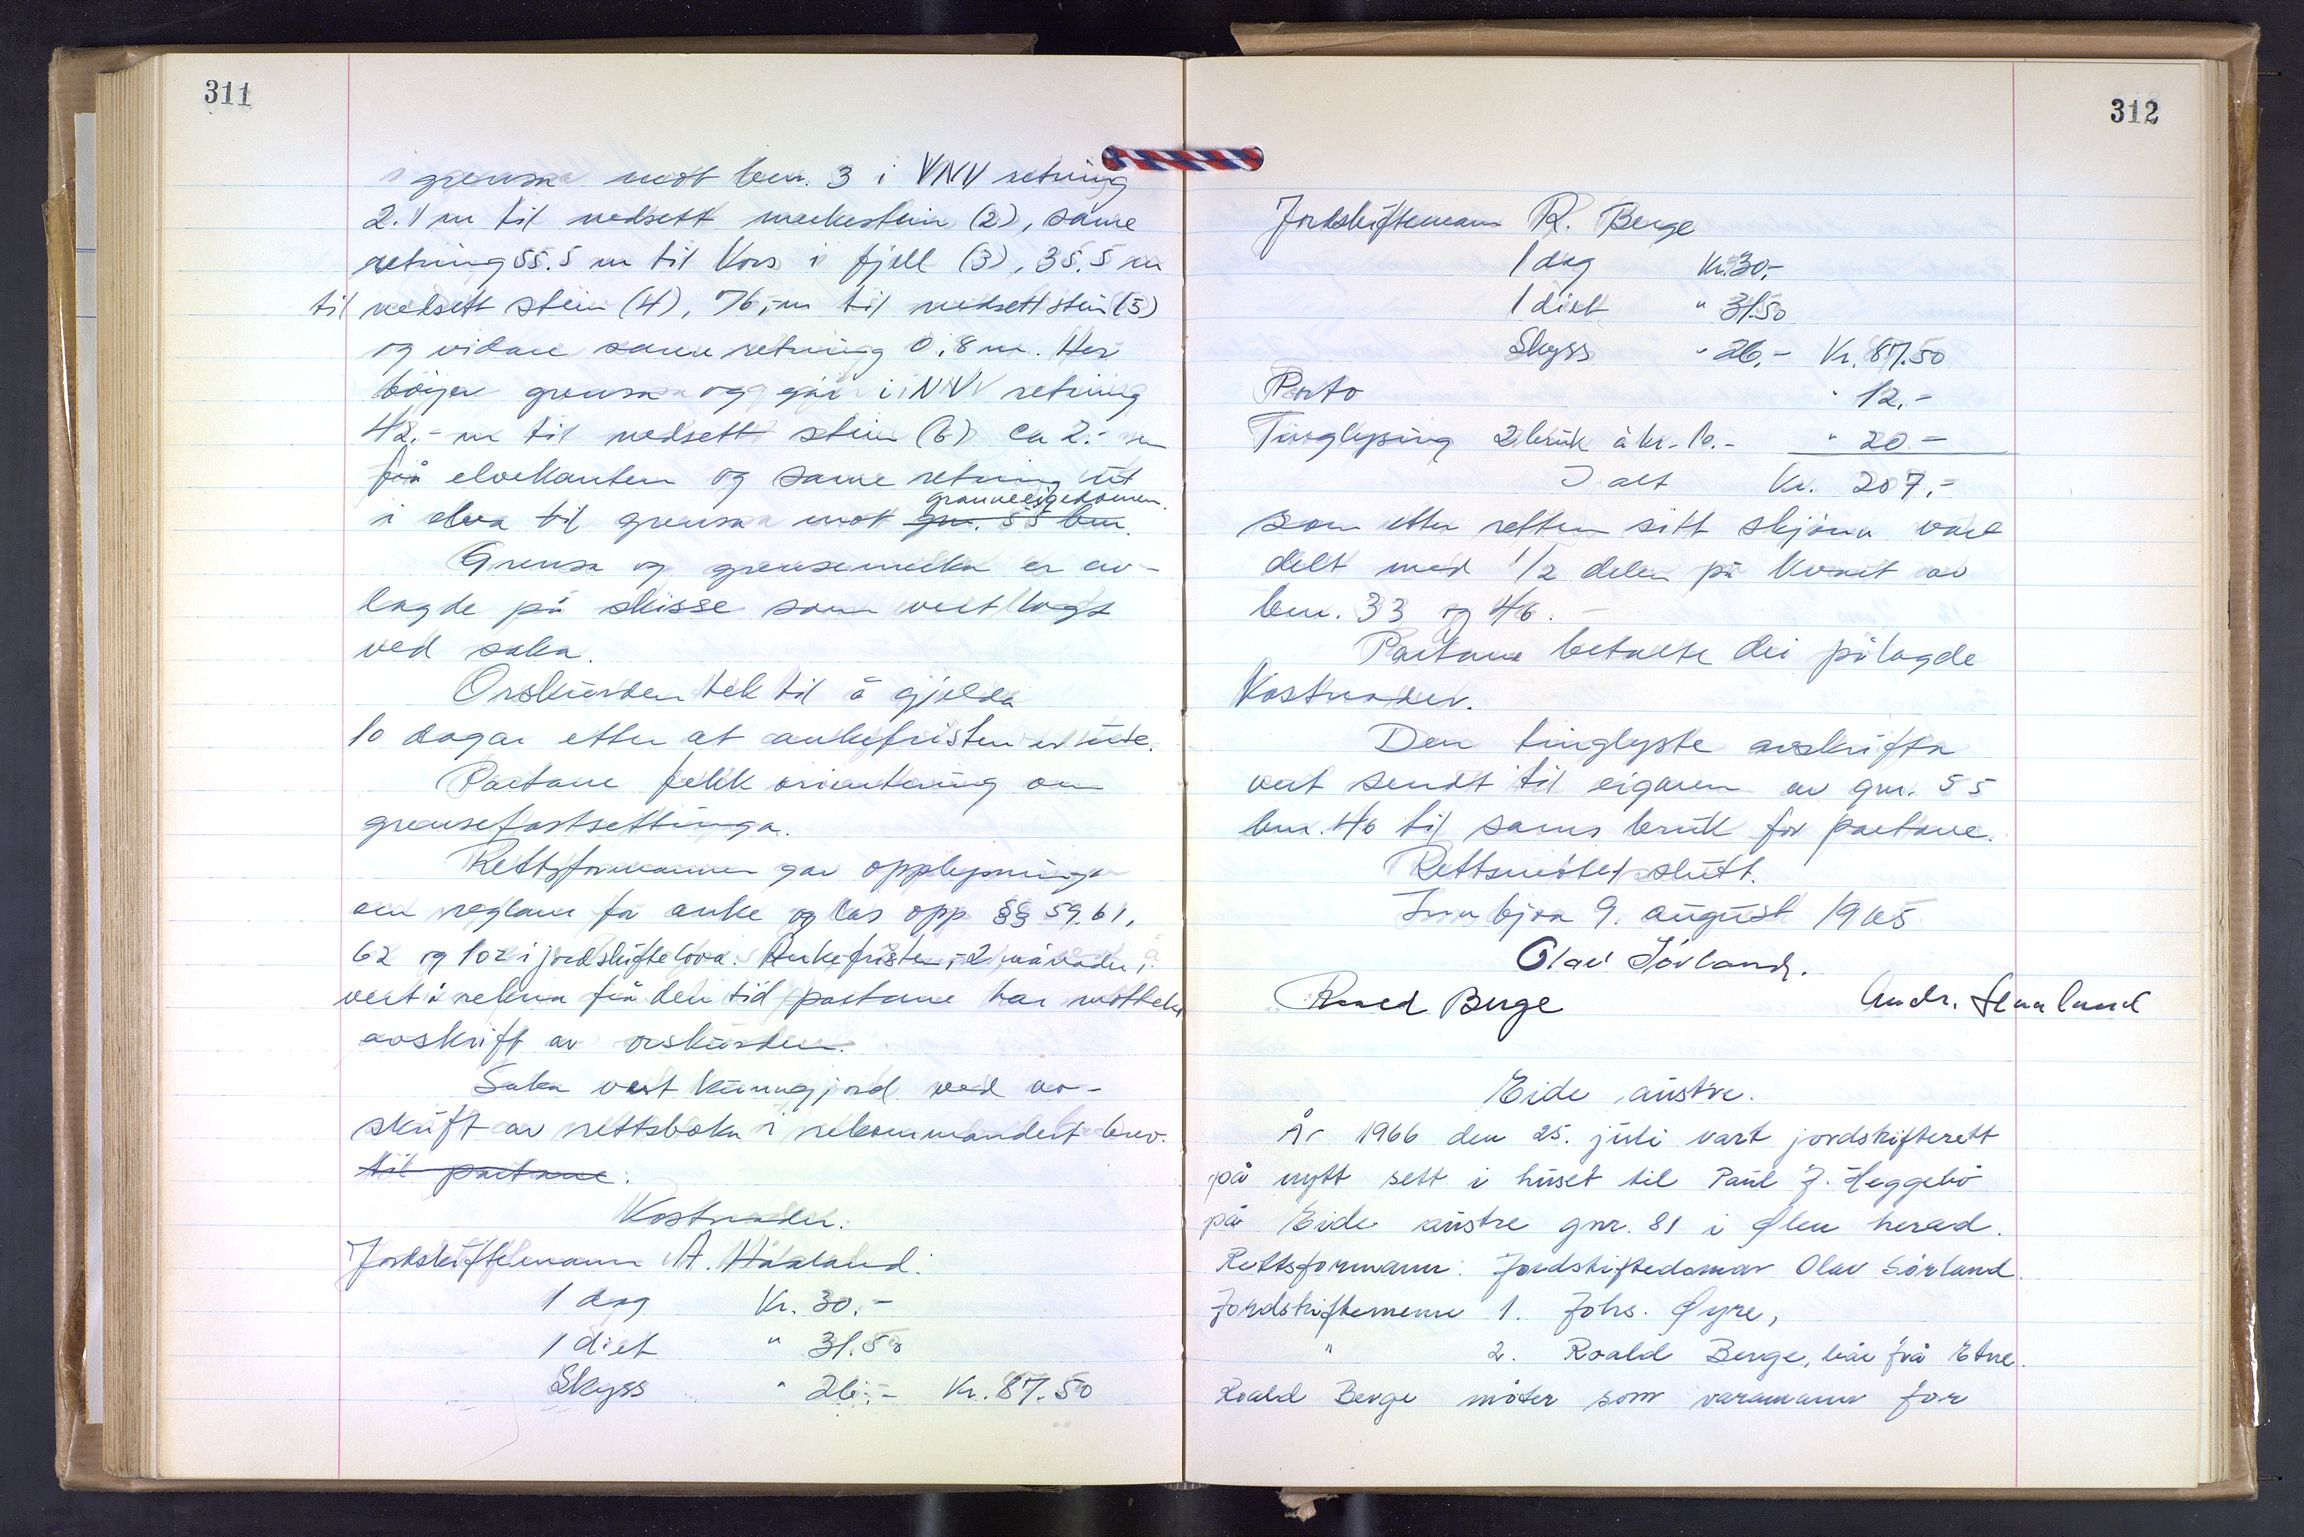 311
i grensa mot bnr. 3 i VNV retning
2.1 m til nedsett merkestein (2), same
retning 55.5 m til kors i fjell (3), 35.5 m
til nedsett stein (4), 76,- m til nedsett stein (5)
og vidare same retning 0.8 m. Her
böyer grensa og går i NNV retning
42.- m til nedsett stein (6) ca 2.- m
frå elvekanten og same retning ut
granneeigedomen.
i elva til grensa mot gnr. 55 bnr.
Grensa og grensemerka er av-
lagde på skisse som vert lagt
ved saka.
Orskurden tek til å gjelda
10 dagar etter at ankefristen er ute.
Partane fekk orientering om
grensefastsettinga.
Rettsformannen gav opplysninga
om reglane for anke og las opp §§ 59. 61,
62 og 102 i jordskiftelova. Ankefristen, 2 månader,
vert å rekna frå den tid partane har motteke
avskrift av orskurden.
Saka vert kunngjord ved av-
skrift av rettsboka i rekommandert brev.
til partane.
Kostnader.
Jordskiftemann A. Håaland:
1 dag Kr. 30.-
1 diet " 31.50
Skyss " 26.- Kr. 87.50
312
Jordskiftemann R. Berge
1 dag Kr. 30,-
1 diet " 31.50
Skyss " 26.- Kr. 87.50
Porto " 12.-
Tinglysing 2 bruk à kr. 10.- " 20.-
I alt Kr. 207.-
som etter retten sitt skjönn vart
delt med 1/2 delen på kvart av
bnr. 33 og 46.
Partane betalte dei pålagde
kostnader.
Den tinglyste avskrifta
vert sendt til eigaren av gnr. 55
bnr. 46 til sams bruk for partane.
Rettsmötet slutt.
9. august 1965
Olav Sörland.
Roald Berge Andr. Haaland
Eide austre.
År 1966 den 25. juli vart jordskifterett
på nytt sett i huset til Paul J. Heggebö
på Eide austre gnr. 81 i Ølen herad.
Rettsformann: Jordskiftedomar Olav Sörland.
Jordskiftemenn 1. Johs. Øyre,
" 2. Roald Berge, båe frå Etne.
Roald Berge möter som varamann for